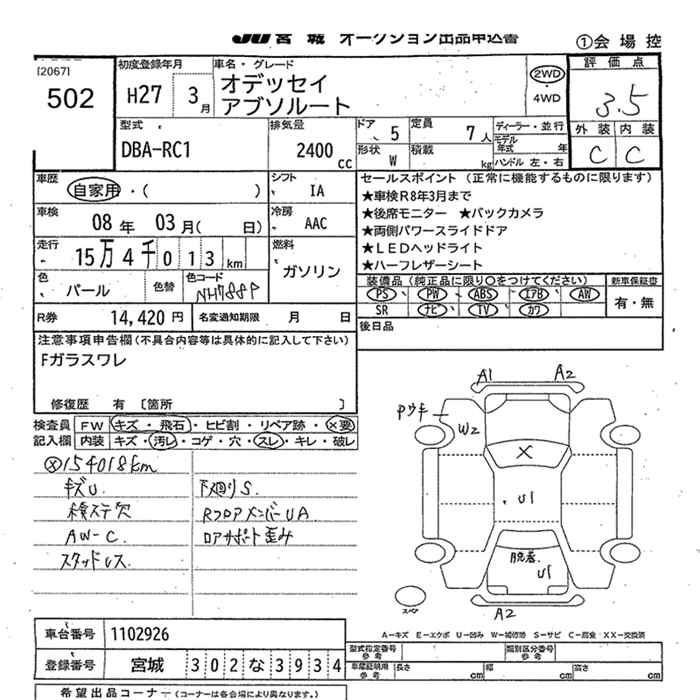 JU 宮城 オークション出品申込書
①会場控
[2067]
502
初度登録年月
H27 3月
車名・グレード
オデッセイ
アブソルート
2WD
・
4WD
評価点
3.5
型式
DBA-RC1
排気量
2400 cc
ドア 5
定員 7人
ディーラー・並行
モデル年式 年
形状 W
積載 kg
ハンドル 左・右
外装 内装
C C
車歴
自家用・( )
シフト
IA
車検
08年 03月( 日)
冷房
AAC
走行
15万4千013km
燃料
ガソリン
色
パール
色替
色コード
NH788P
R券 14,420円
名変通知期限 月 日
セールスポイント (正常に機能するものに限ります)
★車検R8年3月まで
★後席モニター ★バックカメラ
★両側パワースライドドア
★LEDヘッドライト
★ハーフレザーシート
装備品 (純正品に限り○をつけてください)
新車保証書
PS PW ABS エアB AW
SR ナビ TV カワ
有・無
後日品
注意事項申告欄(不具合内容等は具体的に記入して下さい)
Fガラスワレ
修復歴 有 〔箇所 〕
検査員記入欄
FW キズ・飛石・ヒビ割・リペア跡・×要
内装 キズ・汚レ・コゲ・穴・スレ・キレ・破レ
ⓧ154018km
キズU
下廻りS.
検ステ欠
RフロアメンバーUA
AW-C.
ロアサポート歪み
スタッドレス
A1 A2
W2
X
U1
脱着
U1
スペア
A2
A―キズ E―エクボ U―凹み W―補修跡 S―サビ C―腐食 XX―交換済
車台番号 1102926
登録番号 宮城 302な3934
型式指定番号 参考
類別区分番号 参考
車庫証明用 参考
長さ cm
幅 cm
高さ cm
希望出品コーナー(コーナーは各会場により異なります。)